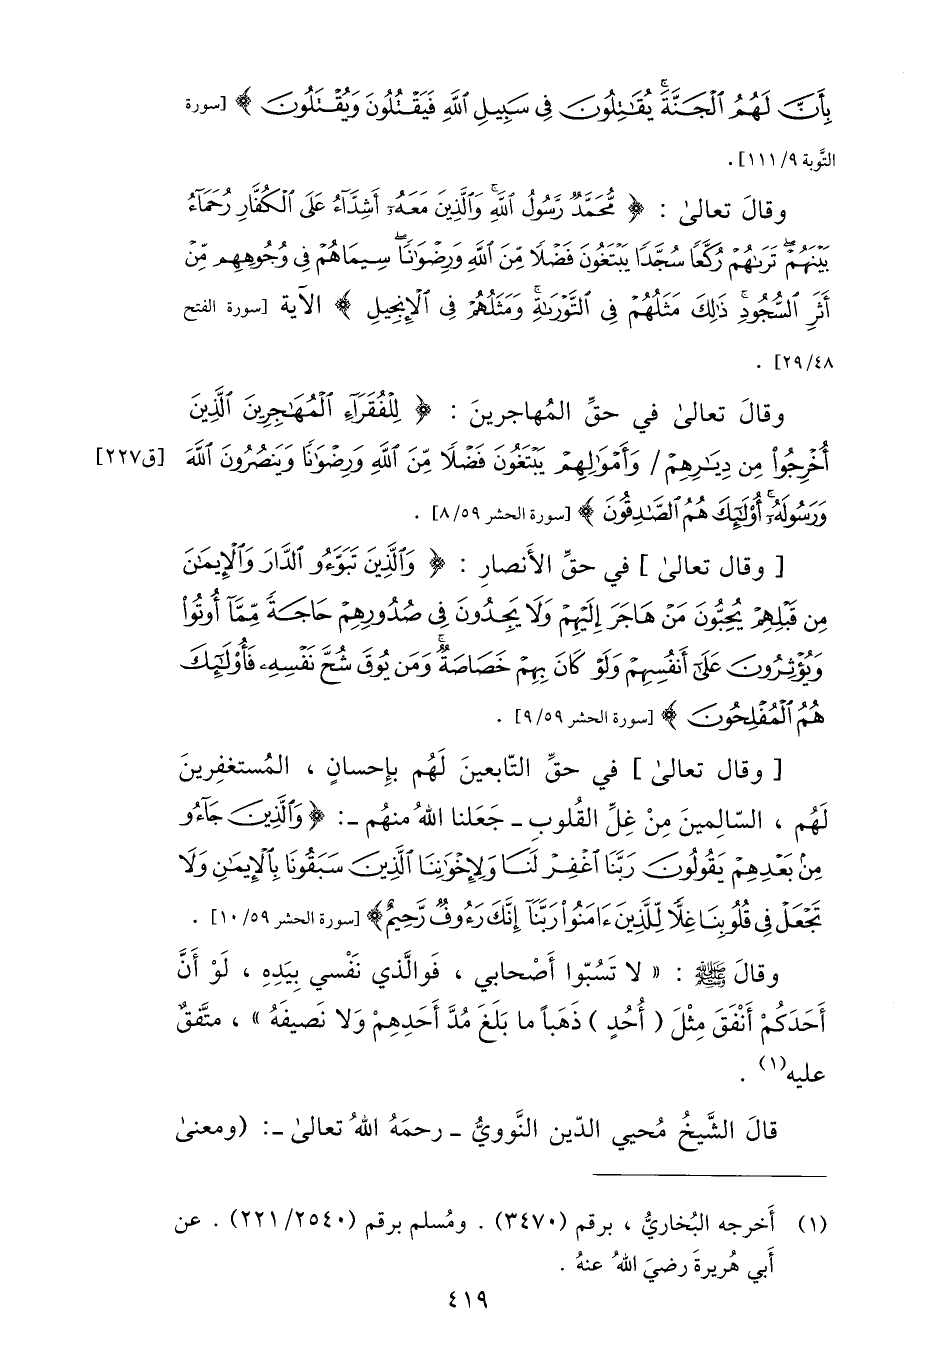 بِأَنَّ لَهُمُ ٱلْجَنَّةَ يُقَٰتِلُونَ فِى سَبِيلِ ٱللَّهِ فَيَقْتُلُونَ وَيُقْتَلُونَ ﴾ [سورة
التَّوبة ٩/١١١] .
وقالَ تعالىٰ : ﴿ مُّحَمَّدٌ رَّسُولُ ٱللَّهِ وَٱلَّذِينَ مَعَهُۥٓ أَشِدَّآءُ عَلَى ٱلْكُفَّارِ رُحَمَآءُ
بَيْنَهُمْ تَرَىٰهُمْ رُكَّعًا سُجَّدًا يَبْتَغُونَ فَضْلًا مِّنَ ٱللَّهِ وَرِضْوَٰنًا سِيمَاهُمْ فِى وُجُوهِهِم مِّنْ
أَثَرِ ٱلسُّجُودِ ذَٰلِكَ مَثَلُهُمْ فِى ٱلتَّوْرَىٰةِ وَمَثَلُهُمْ فِى ٱلْإِنجِيلِ ﴾ الآية [سورة الفتح
٢٩/٤٨] .
وقالَ تعالىٰ في حقِّ المُهاجرينَ : ﴿ لِلْفُقَرَآءِ ٱلْمُهَٰجِرِينَ ٱلَّذِينَ
أُخْرِجُوا۟ مِن دِيَٰرِهِمْ / وَأَمْوَٰلِهِمْ يَبْتَغُونَ فَضْلًا مِّنَ ٱللَّهِ وَرِضْوَٰنًا وَيَنصُرُونَ ٱللَّهَ [ق٢٢٧]
وَرَسُولَهُۥٓ أُو۟لَٰٓئِكَ هُمُ ٱلصَّٰدِقُونَ ﴾ [سورة الحشر ٨/٥٩] .
[ وقال تعالىٰ ] في حقِّ الأَنصارِ : ﴿ وَٱلَّذِينَ تَبَوَّءُو ٱلدَّارَ وَٱلْإِيمَٰنَ
مِن قَبْلِهِمْ يُحِبُّونَ مَنْ هَاجَرَ إِلَيْهِمْ وَلَا يَجِدُونَ فِى صُدُورِهِمْ حَاجَةً مِّمَّآ أُوتُوا۟
وَيُؤْثِرُونَ عَلَىٰٓ أَنفُسِهِمْ وَلَوْ كَانَ بِهِمْ خَصَاصَةٌ وَمَن يُوقَ شُحَّ نَفْسِهِۦ فَأُو۟لَٰٓئِكَ
هُمُ ٱلْمُفْلِحُونَ ﴾ [سورة الحشر ٩/٥٩] .
[ وقال تعالىٰ ] في حقِّ التّابعينَ لَهُم بإِحسانٍ ، المُستغفِرينَ
لَهُم ، السّالِمينَ مِنْ غِلِّ القُلوبِ ـ جَعَلنا اللهُ منهُم ـ: ﴿ وَٱلَّذِينَ جَآءُو
مِنۢ بَعْدِهِمْ يَقُولُونَ رَبَّنَا ٱغْفِرْ لَنَا وَلِإِخْوَٰنِنَا ٱلَّذِينَ سَبَقُونَا بِٱلْإِيمَٰنِ وَلَا
تَجْعَلْ فِى قُلُوبِنَا غِلًّا لِّلَّذِينَ ءَامَنُوا۟ رَبَّنَآ إِنَّكَ رَءُوفٌ رَّحِيمٌ ﴾ [سورة الحشر ١٠/٥٩] .
وقالَ ﷺ : « لا تَسُبّوا أَصْحابي ، فَوالَّذي نَفْسي بِيَدِهِ ، لَوْ أَنَّ
أَحَدَكُمْ أَنْفَقَ مِثْلَ ( أُحُدٍ ) ذَهَباً ما بَلَغَ مُدَّ أَحَدِهِمْ وَلا نَصيفَهُ » ، متَّفقٌ
عليه(١) .
قالَ الشَّيخُ مُحيي الدّين النَّوويُّ ـ رحمَهُ اللهُ تعالىٰ ـ: (ومعنىٰ
(١) أَخرجه البُخاريُّ ، برقم (٣٤٧٠) . ومُسلم برقم (٢٥٤٠/٢٢١) . عن
أَبي هُريرةَ رضيَ اللهُ عنهُ .
٤١٩